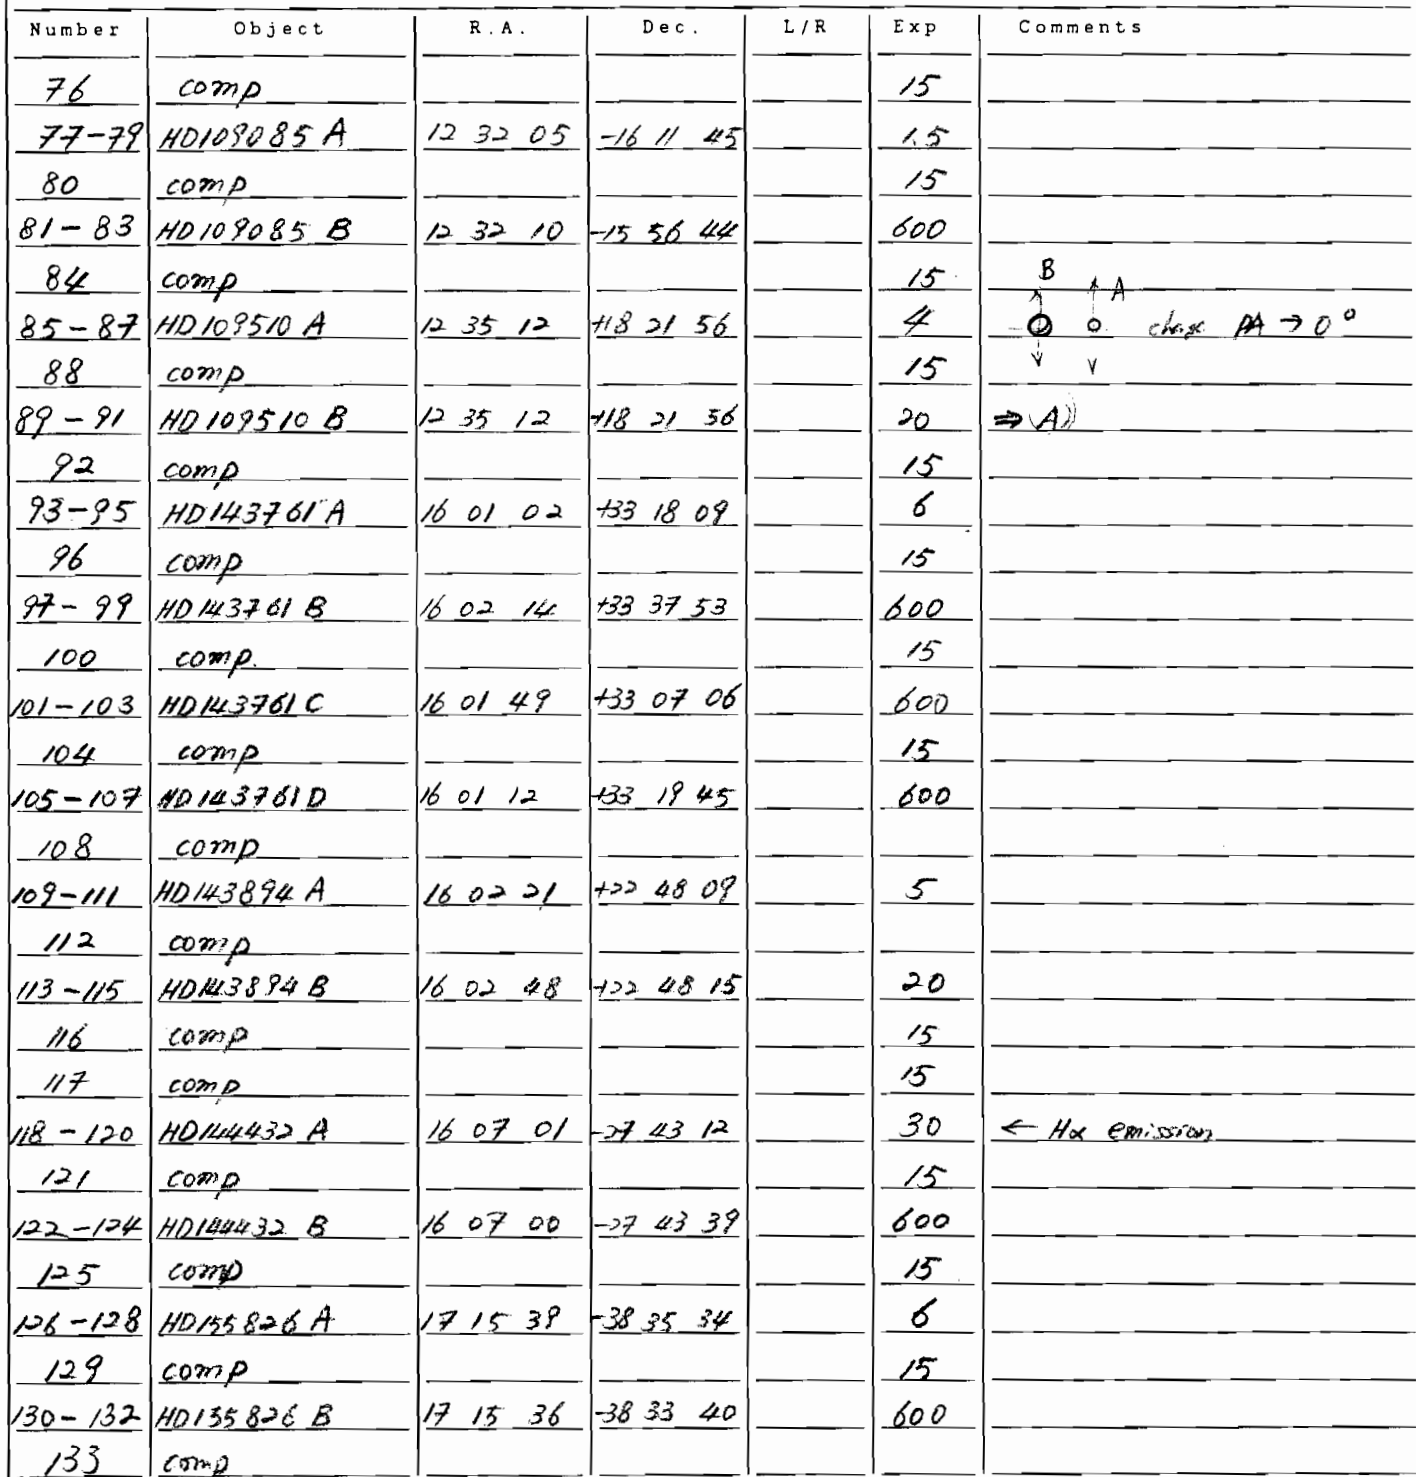 Number Object R.A. Dec. L/R Exp Comments
76 comp 15
77-79 HD109085 A 12 32 05 -16 11 45 1.5
80 comp 15
81-83 HD109085 B 12 32 10 -15 56 44 600
84 comp 15 B A
85-87 HD109510 A 12 35 12 +18 21 56 4 change PA → 0°
88 comp 15
89-91 HD109510 B 12 35 12 +18 21 56 20 ⇒ (A)
92 comp 15
93-95 HD143761 A 16 01 02 +33 18 09 6
96 comp 15
97-99 HD143761 B 16 02 14 +33 37 53 600
100 comp. 15
101-103 HD143761 C 16 01 49 +33 07 06 600
104 comp 15
105-107 HD143761 D 16 01 12 +33 19 45 600
108 comp
109-111 HD143894 A 16 02 21 +22 48 09 5
112 comp
113-115 HD143894 B 16 02 48 +22 48 15 20
116 comp 15
117 comp 15
118-120 HD144432 A 16 07 01 -27 43 12 30 ← Hα emission
121 comp 15
122-124 HD144432 B 16 07 00 -27 43 39 600
125 comp 15
126-128 HD155826 A 17 15 39 -38 35 34 6
129 comp 15
130-132 HD155826 B 17 15 36 -38 33 40 600
133 comp